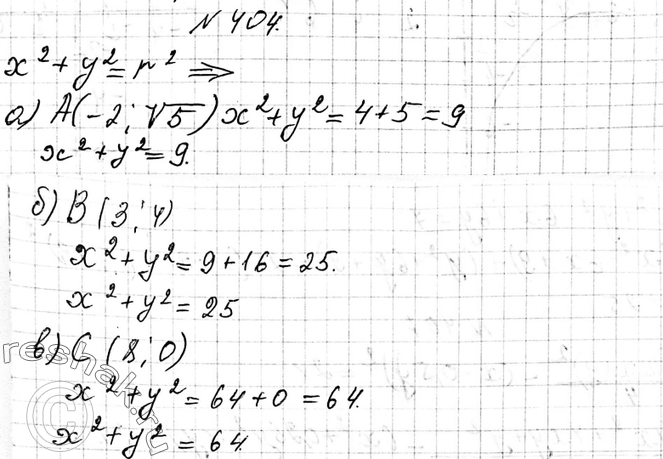 № 404.
x² + y² = r² ⇒
а) A(-2; √5) x² + y² = 4 + 5 = 9
x² + y² = 9.
б) B (3; 4)
x² + y² = 9 + 16 = 25.
x² + y² = 25
в) C (8; 0)
x² + y² = 64 + 0 = 64.
x² + y² = 64.
reshak.ru